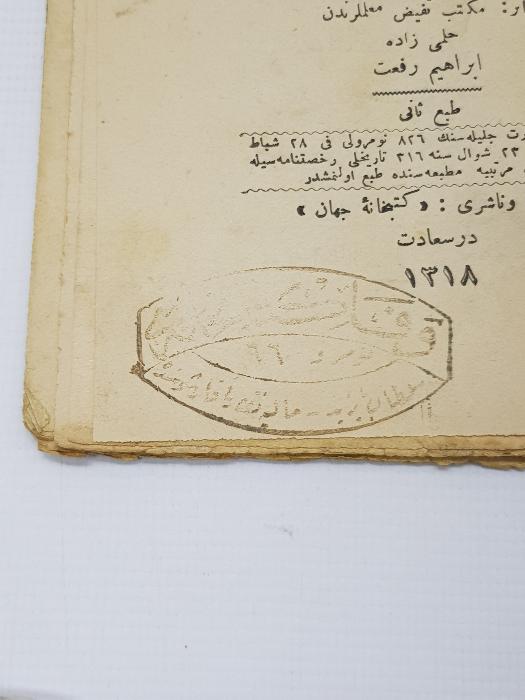 مكتب نفيض معلملرندن
حلمی زاده
ابراهیم رفعت
طبع ثانی
جلیله‌سنك ٨٢٦ نومرولی فی ٢٨ شباط
٢٣ شوال سنه ٣١٦ تاریخلی رخصتنامه‌سیله
مرتبیه مطبعه‌سنده طبع اولنمشدر
وناشری : «كتبخانهٔ جهان»
درسعادت
١٣١٨
نومرو ٦٦
سلطان بایزید